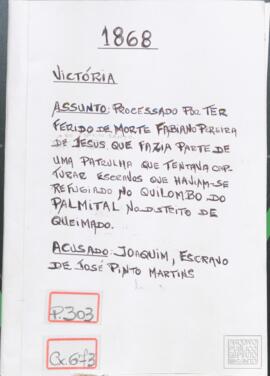 1868
VICTÓRIA
ASSUNTO: PROCESSADO POR TER
FERIDO DE MORTE FABIANO PEREIRA
DE JESUS, QUE FAZIA PARTE DE
UMA PATRULHA QUE TENTAVA CAP-
TURAR ESCRAVOS QUE HAVIAM-SE
REFUGIADO NO QUILOMBO DO
PALMITAL NO DISTRITO DE
QUEIMADO.
ACUSADO: JOAQUIM, ESCRAVO
DE JOSÉ PINTO MARTINS
P.303
Cx.673